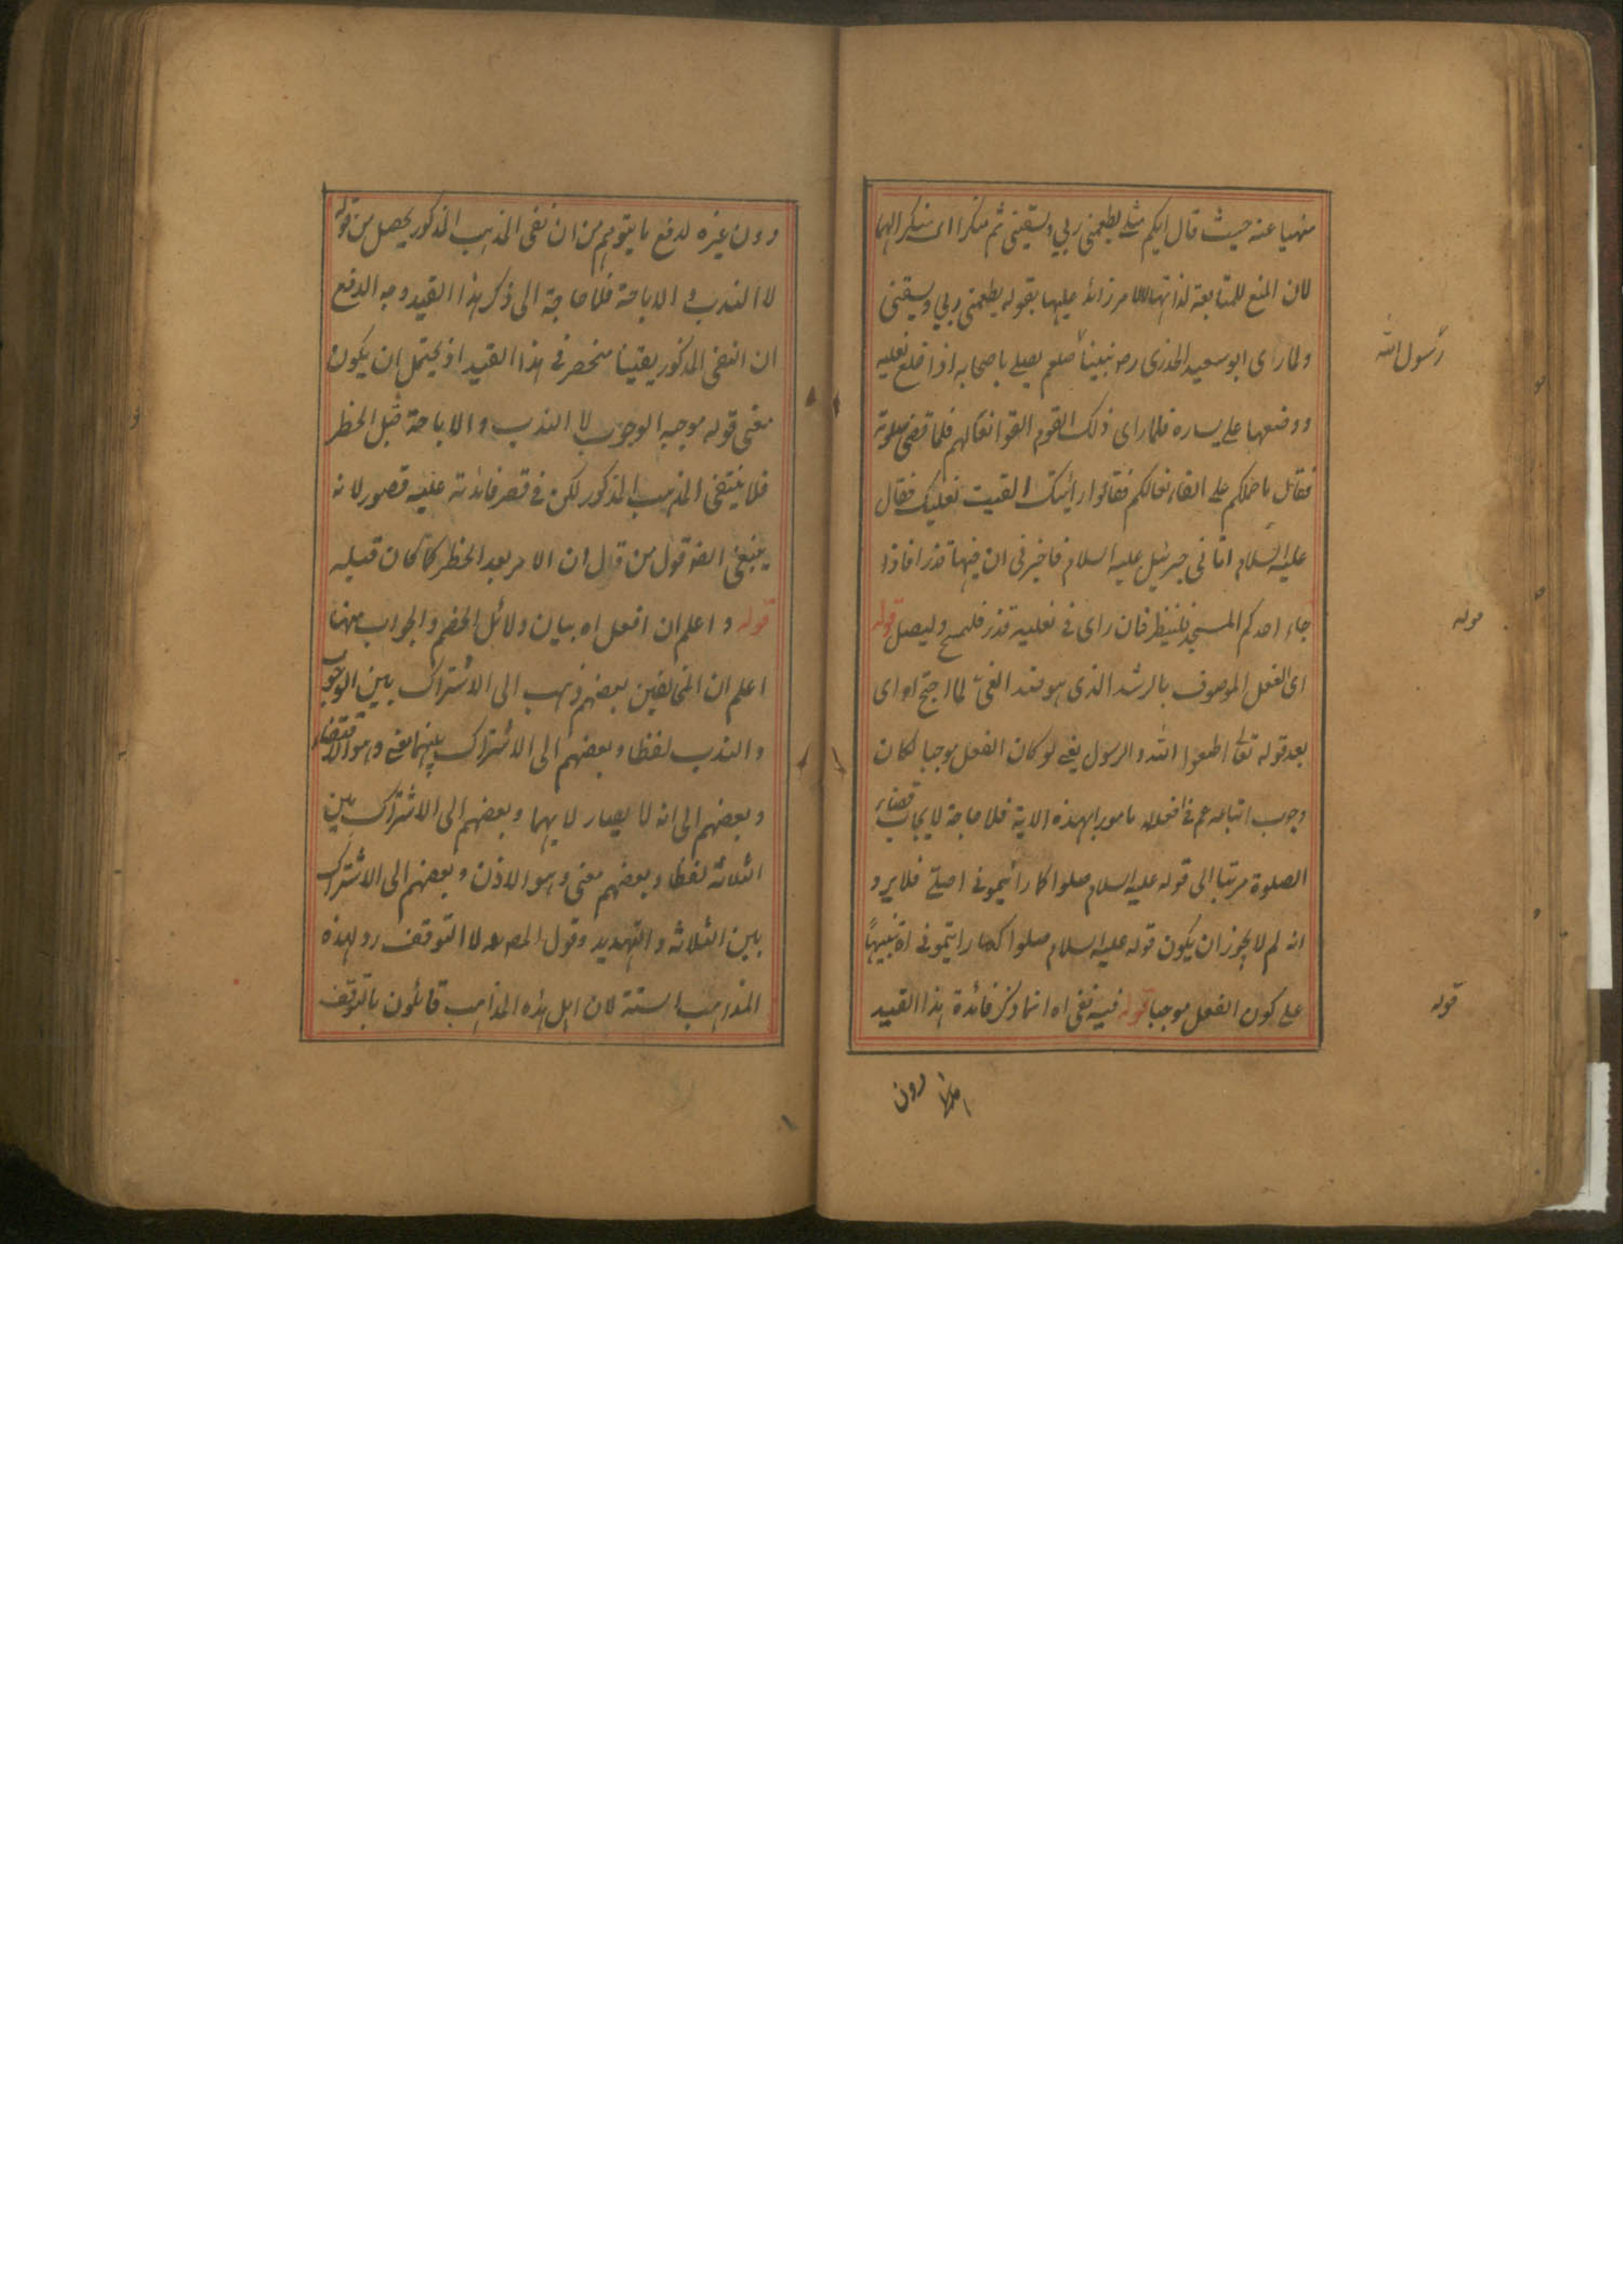 منهيا عنه حيث قال ايكم مثلي يطعمني ربي ويسقيني ثم منكرا اى منكر الهما
لان المنع للمتابعة لذاتها لا لامر زائد عليها بقوله يطعمني ربي ويسقيني
ولما راى ابو سعيد الخدرى رض نبينا صلعم يصلي باصحابه اذا خلع نعليه
رسول الله
ووضعها على يساره فلما راى ذلك القوم القوا نعالهم فلما قضى صلوته
فقال ما حملكم على القاء نعالكم فقالوا رأيتك القيت نعليك فقال
عليه السلام اتاني جبرئيل عليه السلام فاخبرنى ان فيهما قذرا فاذا
جاء احدكم المسجد فلينظر فان راى في نعليه قذر فليمسح وليصل قوله
قوله
اى الفعل الموصوف بالرشد الذى هو ضد الغي لما احتج اه اى
بعد قوله تعالى اطيعوا الله والرسول يعني لو كان الفعل موجبا لكان
وجوب اتباعه عم في افعاله مامورا بهذه الاية فلا حاجة لايجاب قضاء
الصلوة مرتبا الى قوله عليه السلام صلوا كما رأيتموني اصلي فلا يرد
انه لم لا يجوز ان يكون قوله عليه السلام صلوا كما رايتموني اه تنبيها
على كون الفعل موجبا قوله فيه نفى اه انما ذكر فائدة هذا القيد
قوله
دون
دون غيره لدفع ما يتوهم من ان نفى المذهب المذكور يحصل من قوله
لا الندب والاباحة فلا حاجة الى ذكر هذا القيد وجه الدفع
ان النفى المذكور يقينا منحصر في هذا القيد اذ يحتمل ان يكون
معنى قوله موجبه الوجوب لا الندب والاباحة قبل الحظر
فلا ينتفى المذهب المذكور لكن في قصر فائدته عليه قصور لانه
ينبغى ايضا قول من قال ان الامر بعد الحظر كما كان قبله
قوله واعلم ان افعل اه بيان دلائل الخصم والجواب عنها
اعلم ان المخالفين بعضهم ذهب الى الاشتراك بين الوجوب
والندب لفظا وبعضهم الى الاشتراك بينهما معنى وهو الاقتضاء
وبعضهم الى انه لا يصار لايهما وبعضهم الى الاشتراك بين
الثلاثة لفظا وبعضهم معنى وهو الاذن وبعضهم الى الاشتراك
بين الثلاثه والتهديد وقول المص لا التوقف رد لهذه
المذاهب الستة لان اهل هذه المذاهب قائلون بالتوقف